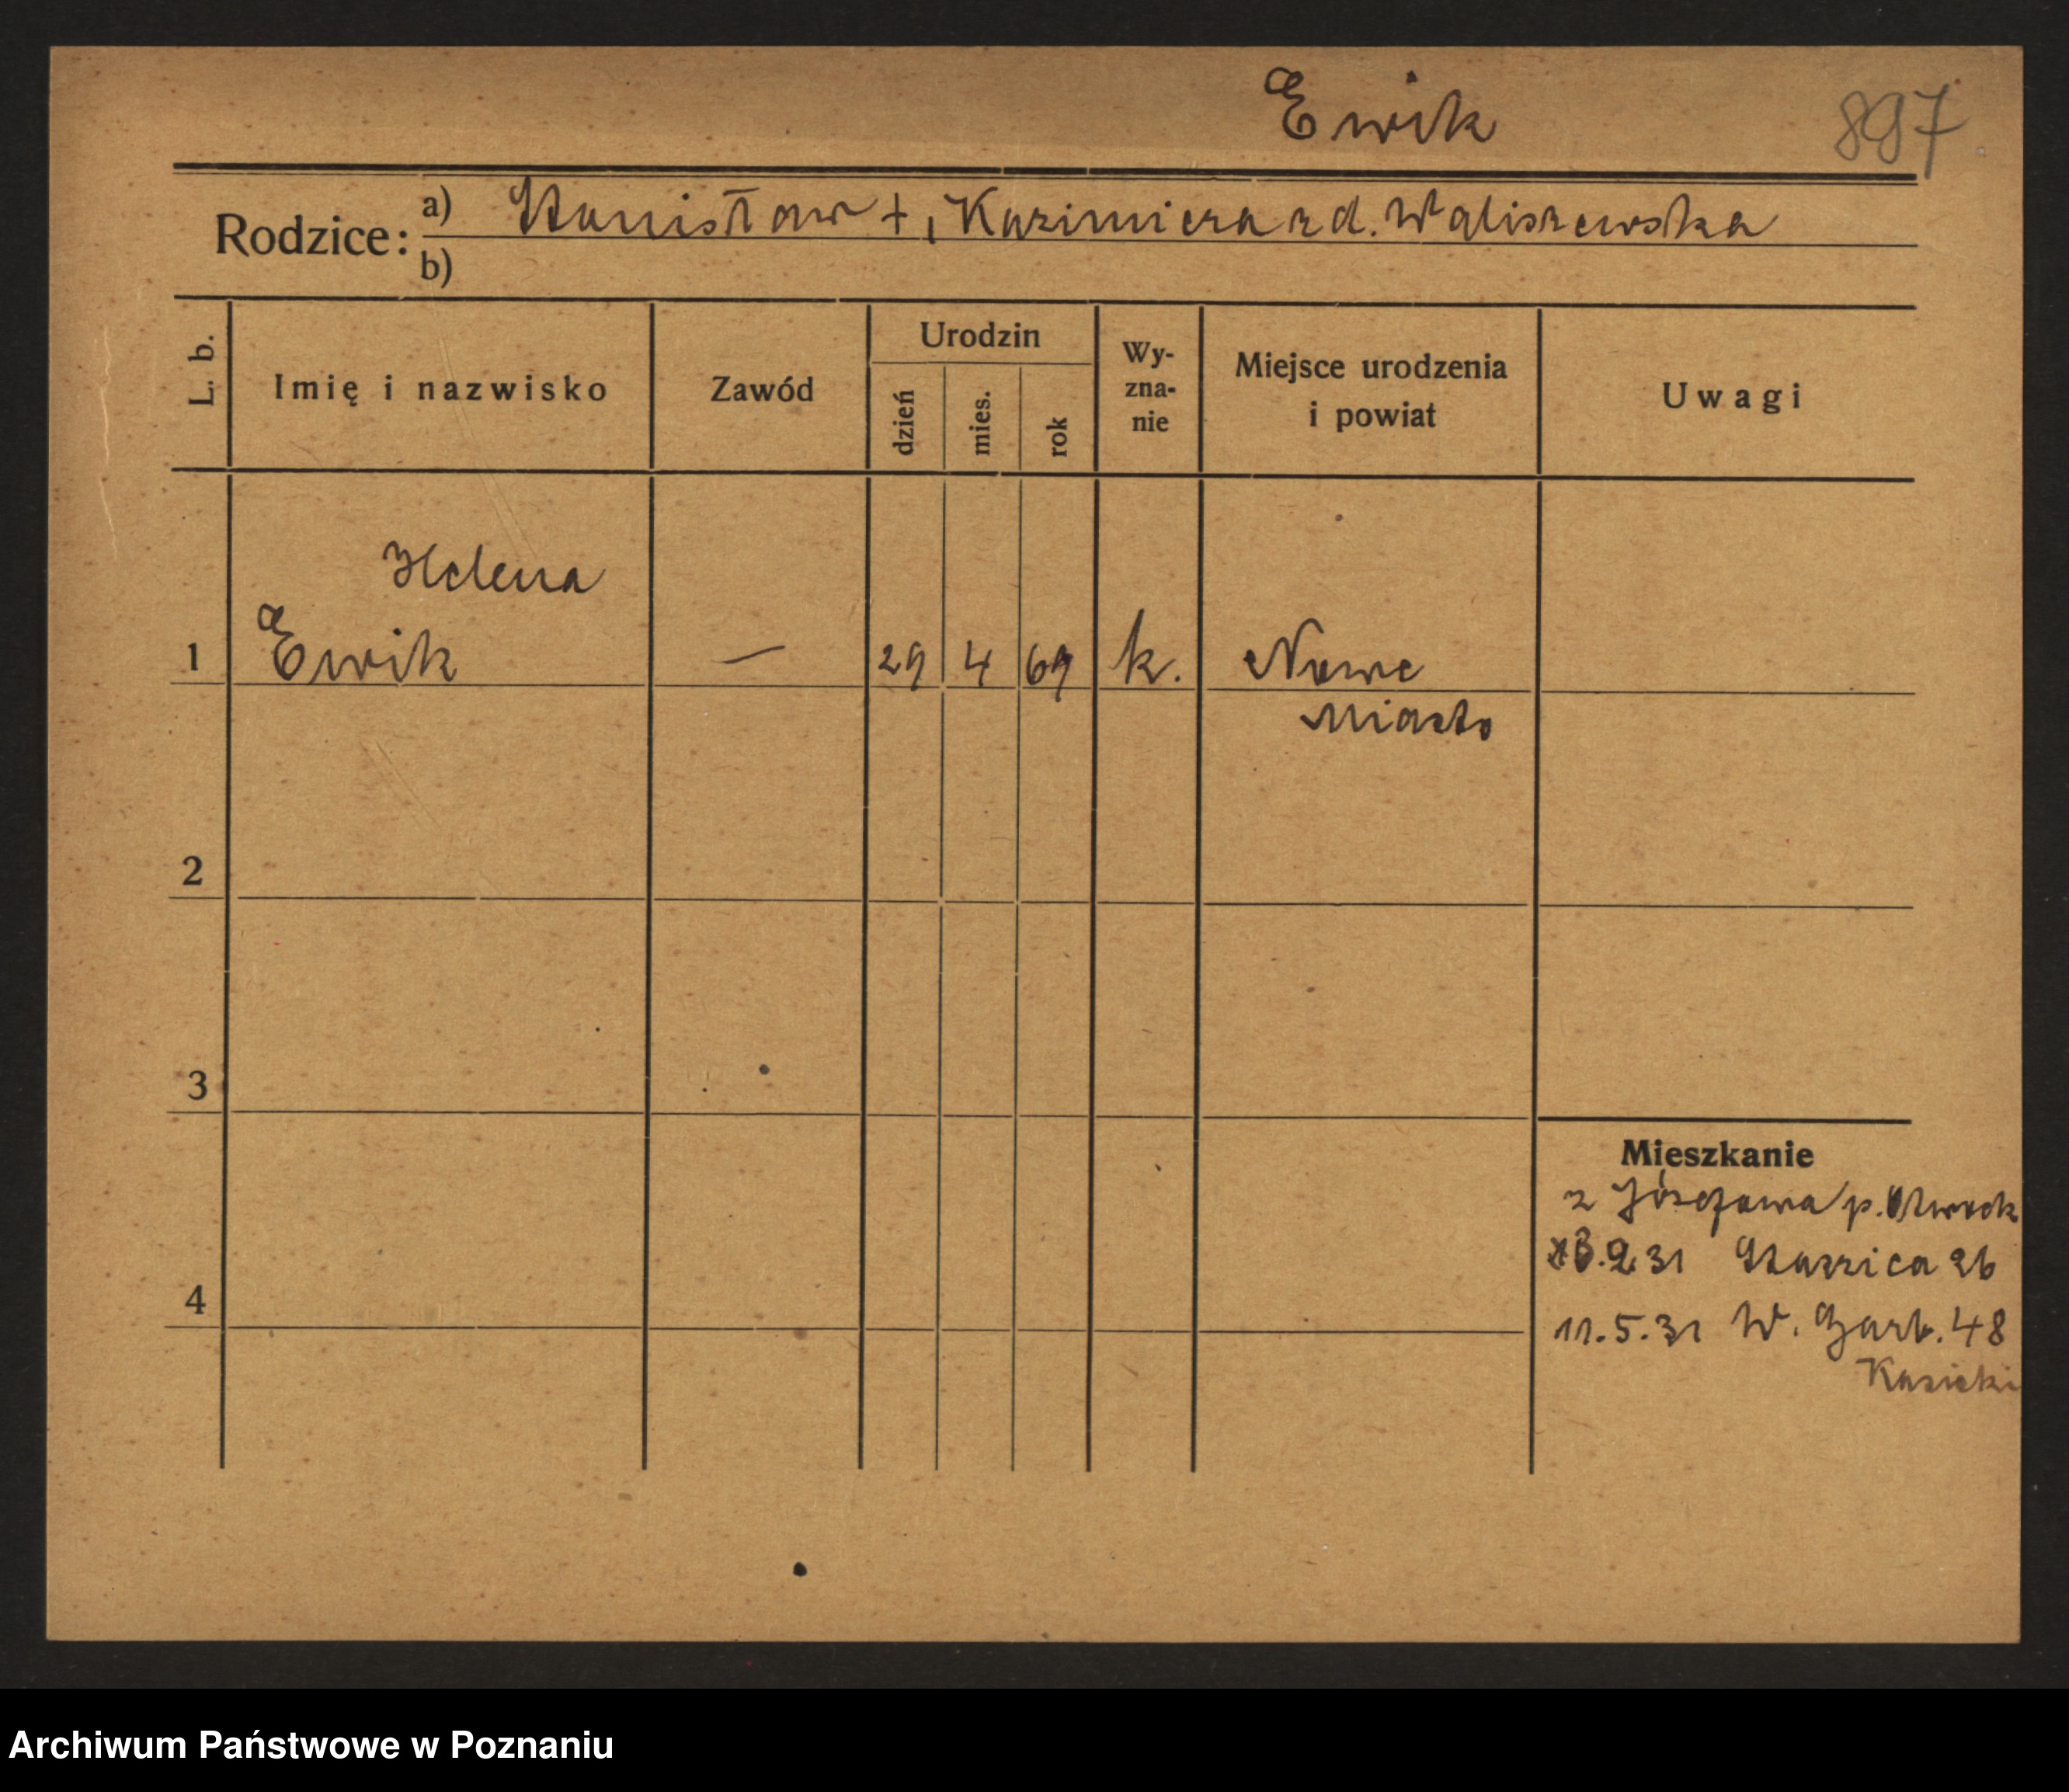 Ewik 897
Rodzice: a) Stanisław +, Kazimiera z d. Waliszewska
b)
L. b. Imię i nazwisko Zawód Urodzin dzień mies. rok Wy-zna-nie Miejsce urodzenia i powiat Uwagi
Helena
1 Ewik — 29 4 69 k. Nowe
Miasto
2
3
Mieszkanie
z Józefowa p. Otwock
.2.31 Staszica 26
4
11.5.31 W. Garb. 48
Archiwum Państwowe w Poznaniu